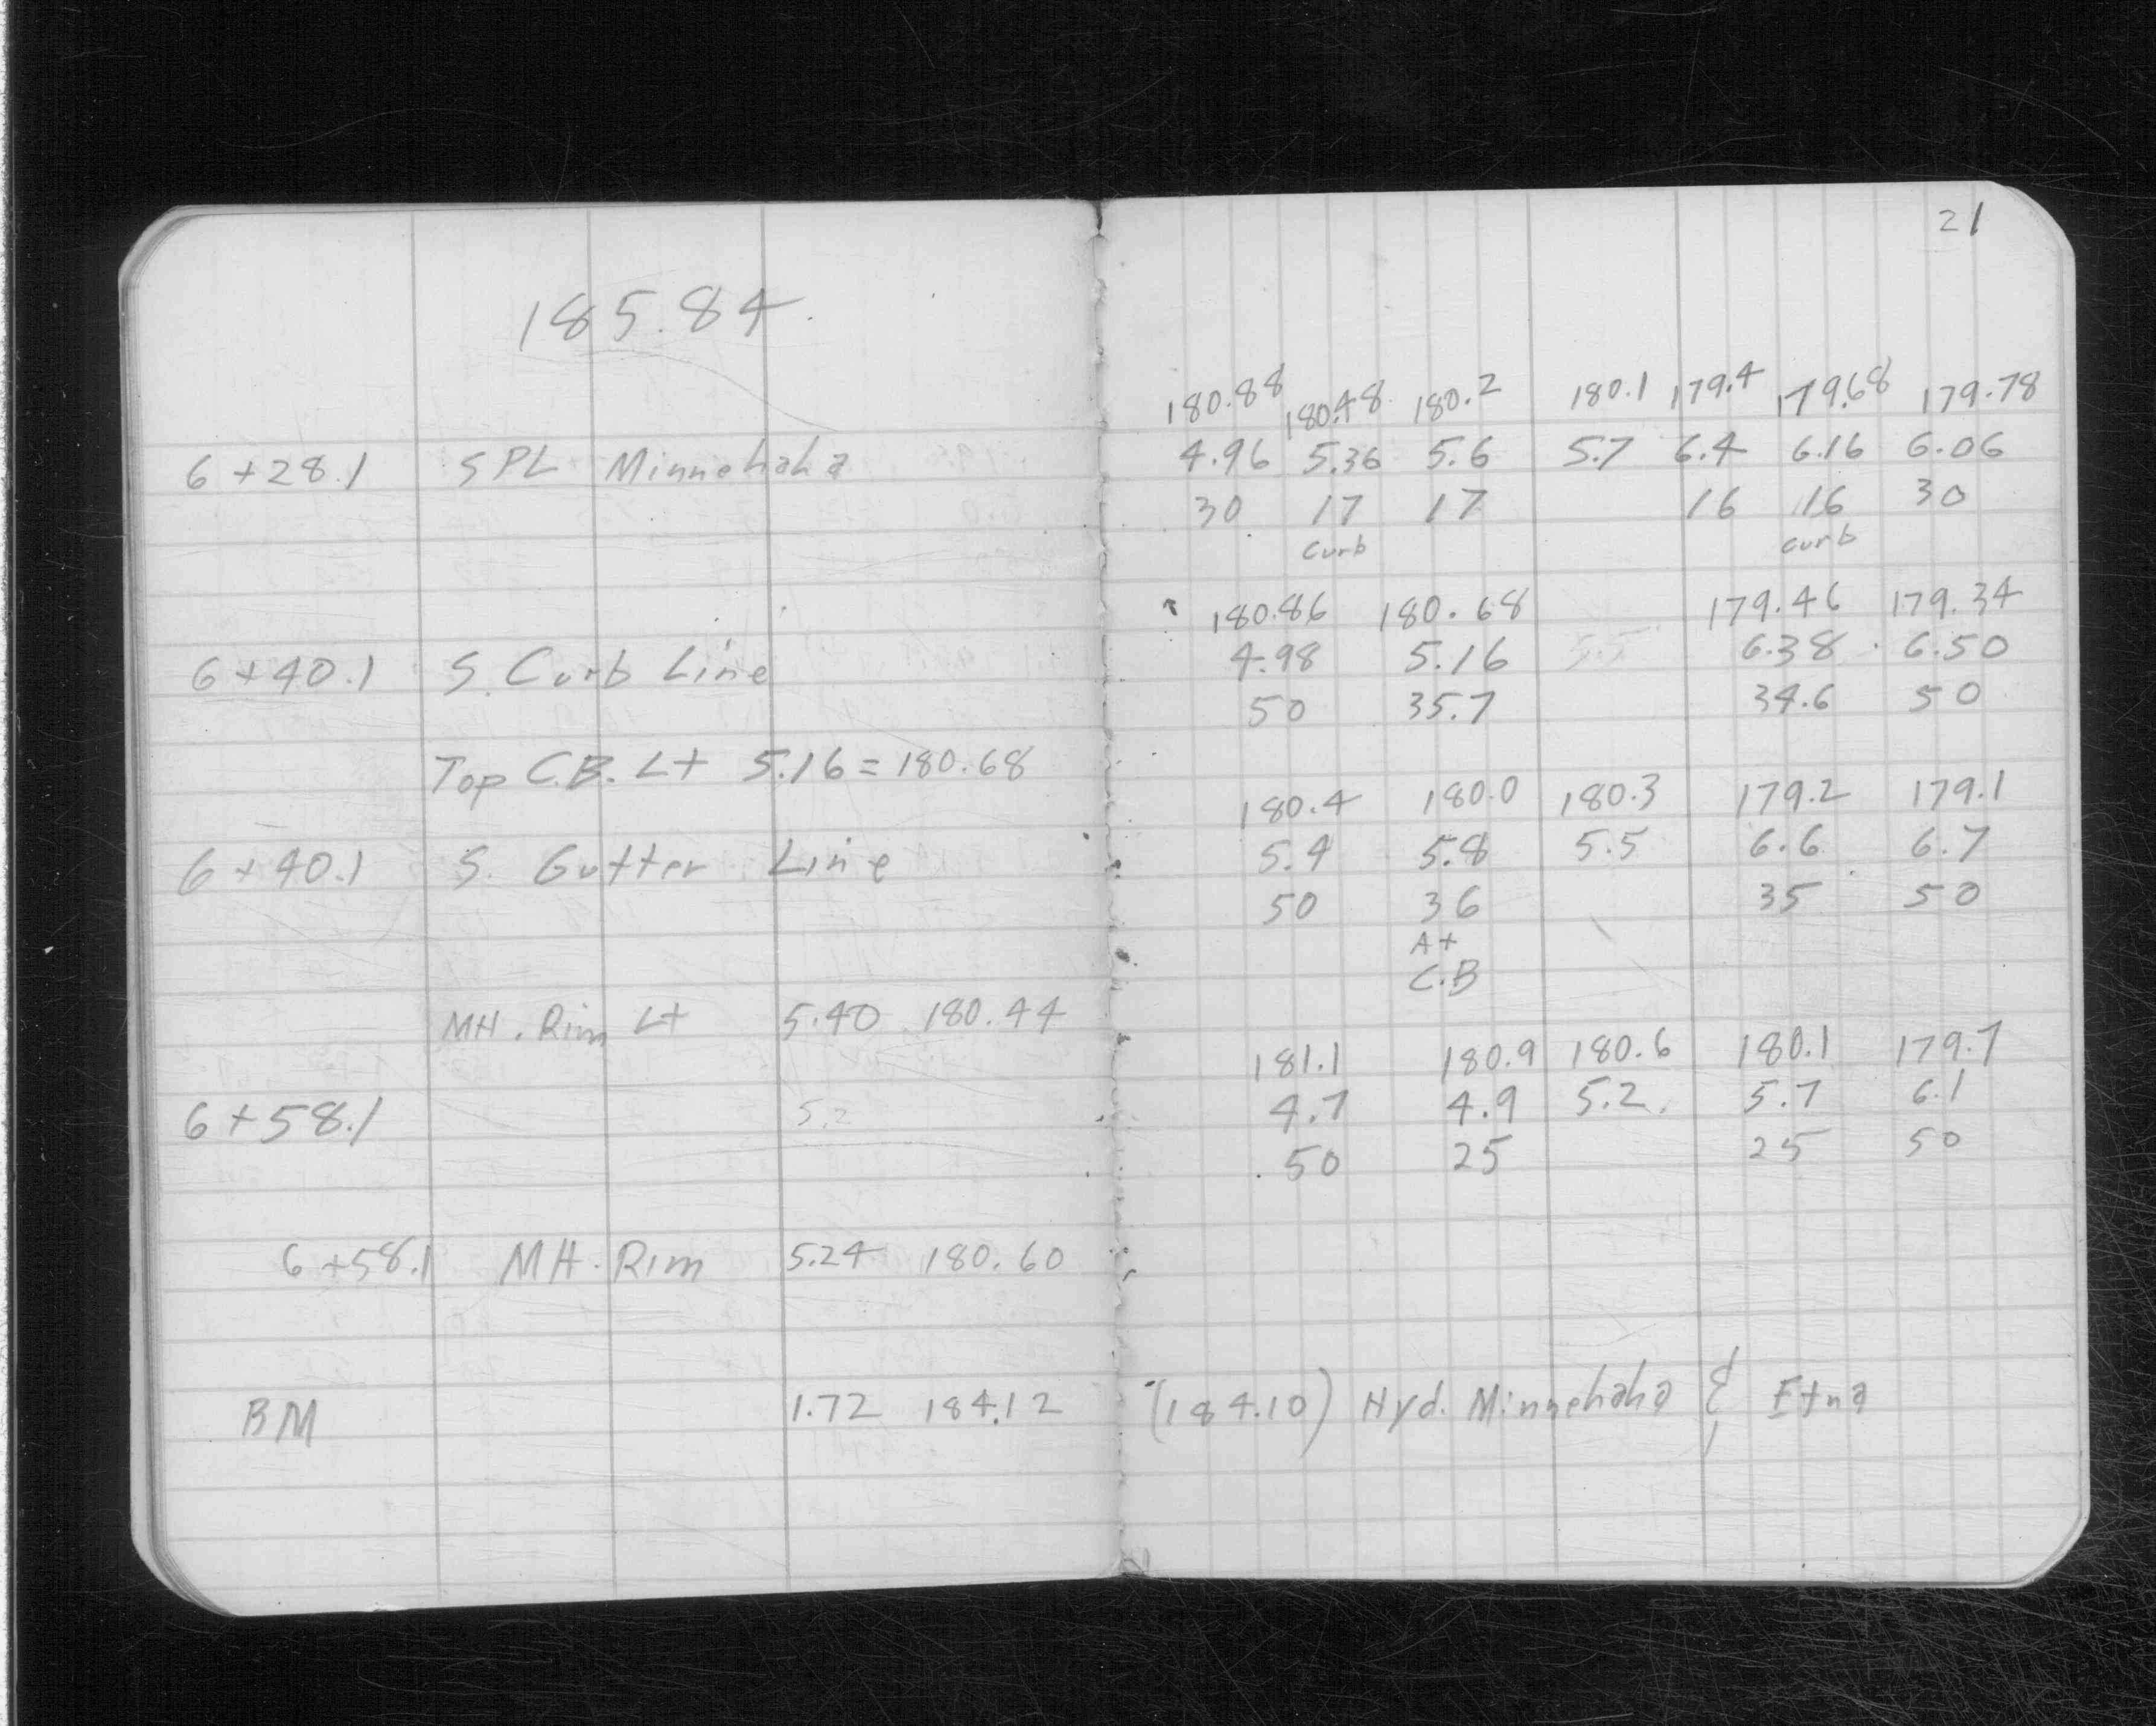 21
185.84
180.88 180.48 180.2 180.1 179.4 179.68 179.78
6+28.1 SPL Minnehaha 4.96 5.36 5.6 5.7 6.4 6.16 6.06
30 17 17 16 16 30
Curb curb
180.86 180.68 179.46 179.34
6+40.1 S. Curb Line 4.98 5.16 5.5 6.38 6.50
50 35.7 34.6 50
Top C.B. Lt 5.16 = 180.68
180.4 180.0 180.3 179.2 179.1
6+40.1 S. Gutter Line 5.4 5.8 5.5 6.6 6.7
50 36 35 50
At
C.B
MH. Rim Lt 5.40 180.44
181.1 180.9 180.6 180.1 179.7
6+58.1 5.2 4.7 4.9 5.2 5.7 6.1
50 25 25 50
6+58.1 MH. Rim 5.24 180.60
BM 1.72 184.12 (184.10) Hyd. Minnehaha & Etna